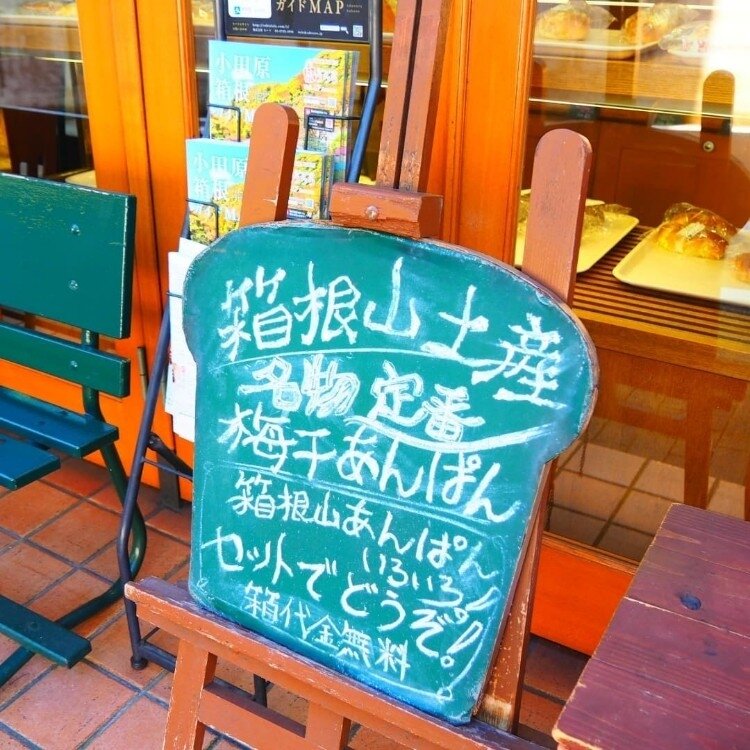 ガイドMAP
小田原
箱根
小田原
箱根
箱根山土産
名物 定番
梅干あんぱん
箱根山あんぱん
いろいろ!
セットでどうぞ!
箱代金無料